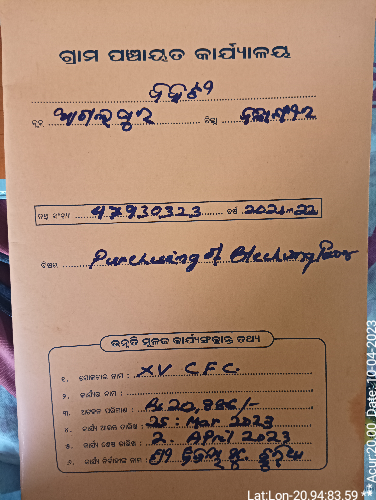 ଗ୍ରାମ ପଞ୍ଚାୟତ କାର୍ଯ୍ୟାଳୟ
ବ୍ଲକ୍ ଆଗଲପୁର ଜିଲ୍ଲା ବଲାଙ୍ଗୀର
ନଥି ସଂଖ୍ୟା 47930323 ବର୍ଷ 2021-22
ବିଷୟ Purchasing of
ଉନ୍ନତି ମୂଳକ କାର୍ଯ୍ୟସଂକ୍ରାନ୍ତ ତଥ୍ୟ
୧. ଯୋଜନାର ନାମ : XV C F C.
୨. କାର୍ଯ୍ୟର ନାମ :
୩. ଅଟକଳ ପରିମାଣ :
୪. କାର୍ଯ୍ୟ ଆରମ୍ଭ ତାରିଖ : 25. Mar 2023
୫. କାର୍ଯ୍ୟ ଶେଷ ତାରିଖ : 2. April 2023
୬. କାର୍ଯ୍ୟ ନିର୍ବାହୀଙ୍କ ନାମ :
Lat:Lon-20.94:83.59 *** Acu:20.00 Date:10-04-2023